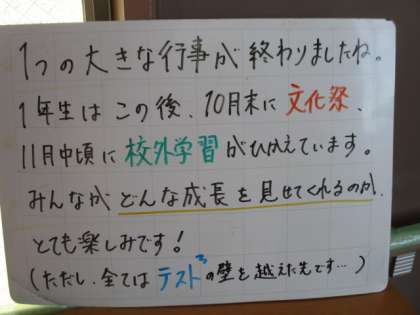 1つの大きな行事が終わりましたね。
1年生はこの後、10月末に文化祭、
11月中頃に校外学習がひかえています。
みんながどんな成長を見せてくれるのか、
とても楽しみです！
(ただし、全てはテストの壁を越えた先です…)